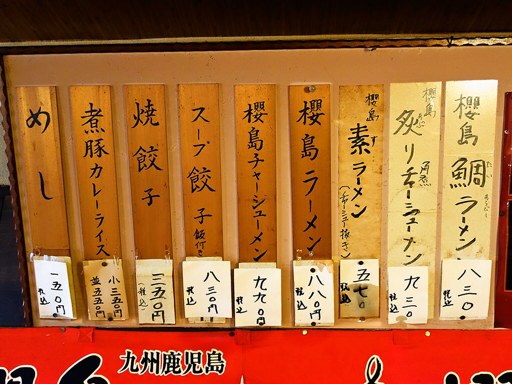 櫻島鯛ラーメン
たい
八三〇
税込
櫻島
炙りチャーシューメン
あぶ
角煮
九三〇
税込
櫻島
素ラーメン
す
(チャーシュー抜き)
五七〇
税込
櫻島ラーメン
八八〇円
税込
櫻島チャーシューメン
九九〇円
税込
スープ餃子
飯付き
八三〇円
税込
焼餃子
三五〇円
(税込)
煮豚カレーライス
小三五〇円
並五五〇円
税込
めし
一五〇円
税込
九州鹿児島